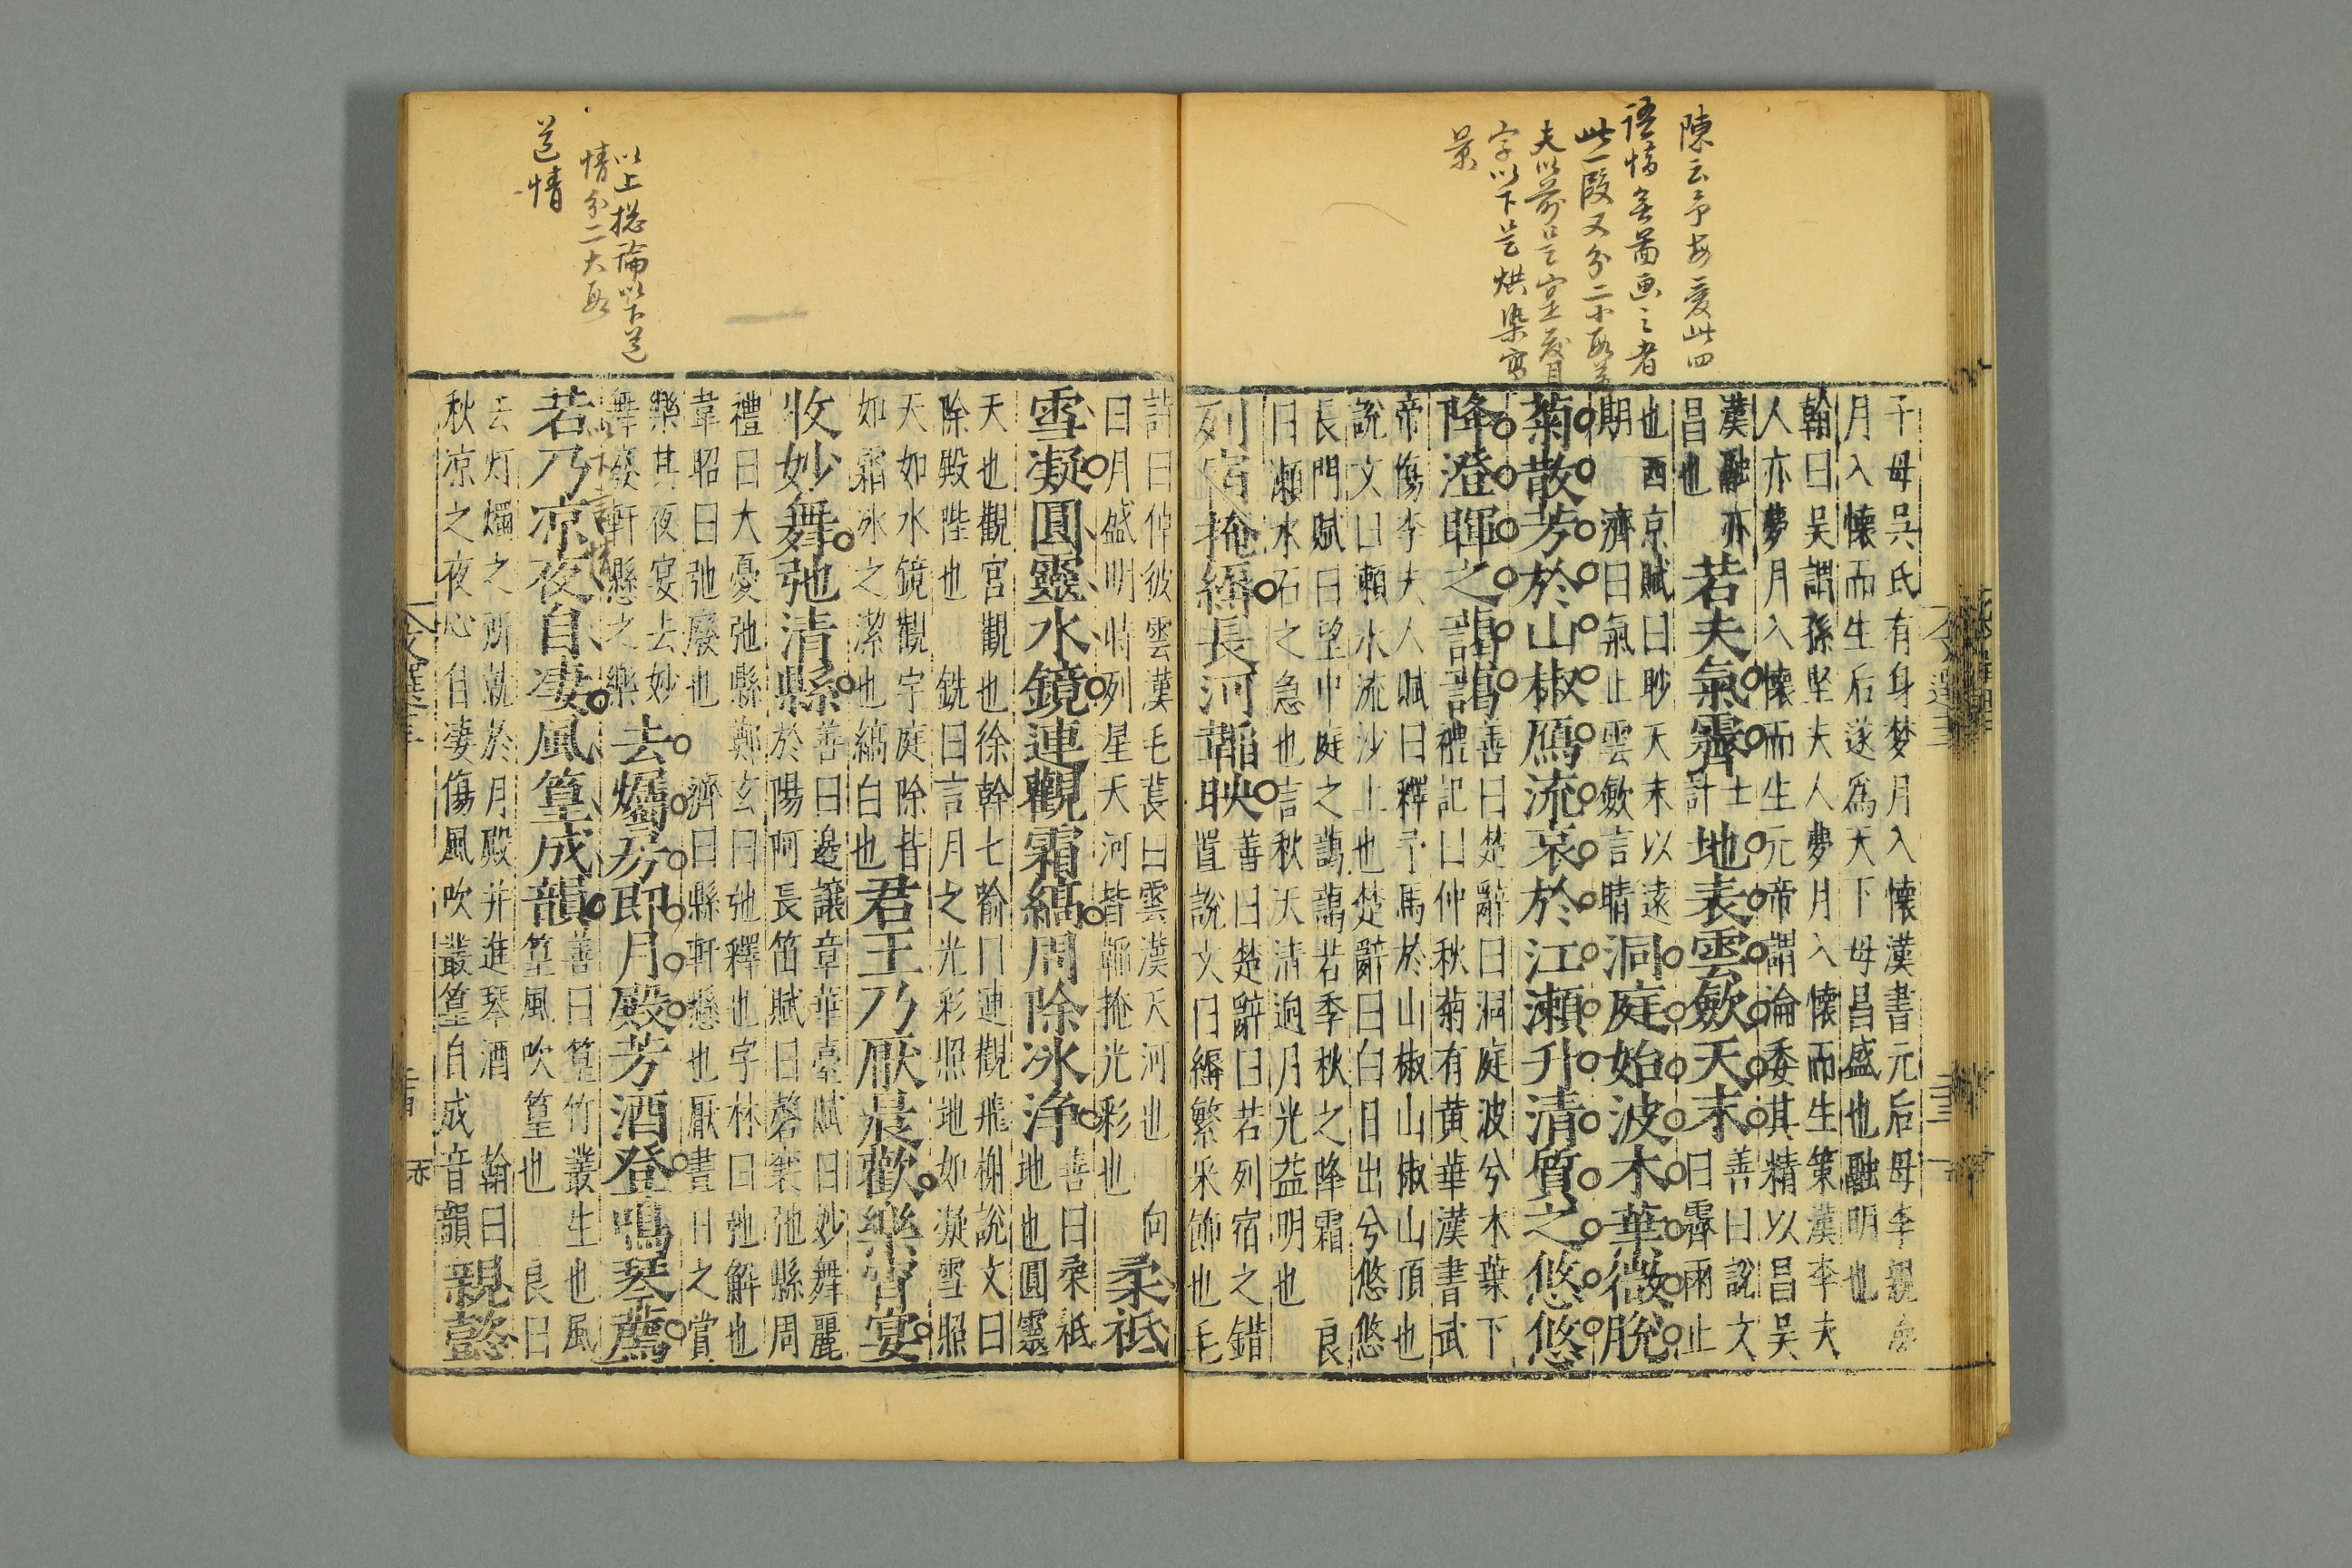 陳云予每愛此四
語情㝡啚画之者
此一段又分二小段若
夫以前是實㝡月
字以下是烘染寫
景
子母吳氏有身梦月入懐漢書元后母李親
月入懐而生后遂爲天下母昌盛也融明也
翰曰吴謂孫堅夫人夢月入懐而生策漢李夫
人亦夢月入懐而生元帝謂淪委其精以昌吴
漢融亦
昌也
若夫氣霽地表雲歛天末
善曰說文
曰霽雨止
也西京賦曰眇天末以遠
期 濟曰氣止雲歛言晴
洞庭始波木葉微脫
菊散芳於山椒鴈流哀於江瀬升清質之悠悠
降澄暉之藹藹
善曰楚辭曰洞庭波兮木葉下
禮記曰仲秋菊有黄華漢書武
帝傷李夫人賦曰釋予馬於山椒山椒山頂也
說文曰瀬水流沙上也楚辭曰白日出兮悠悠
長門賦曰望中庭之藹藹若季秋之降霜 良
曰瀬水石之急也言秋天清迥月光益明也
列宿掩縟長河韜映
善曰楚辭曰若列宿之錯
置說文曰縟繁采飾也毛
詩曰倬彼雲漢毛萇曰雲漢天河也 向
曰月盛明時列星天河皆韜掩光彩也
柔祗
雪凝圓靈水鏡連觀霜縞周除冰净
善曰柔祗
地也圓靈
天也觀宫觀也徐幹七喻曰連觀飛榭說文曰
除殿陛也 銑曰言月之光彩照地如凝雪照
天如水鏡觀宇庭除皆
如霜冰之潔也縞白也
君王乃厭晨歡樂宵宴
收妙舞弛清縣
善曰邊讓章華臺賦曰妙舞麗
於陽阿長笛賦曰磬襄弛縣周
禮曰大憂弛縣鄭玄曰弛釋也字林曰弛解也
韋昭曰弛廢也 濟曰縣軒懸也厭晝日之賞
樂其夜宴去妙
舞廢軒懸之樂
去燭房即月殿芳酒登鳴琴薦
若乃凉夜自凄風篁成韻
善曰篁竹叢生也風
篁風吹篁也 良曰
去灯燭之所就於月殿并進琴酒 翰曰
秋凉之夜心自凄傷風吹叢篁自成音韻
親懿
以上捴論以下道
情分二大段
道情